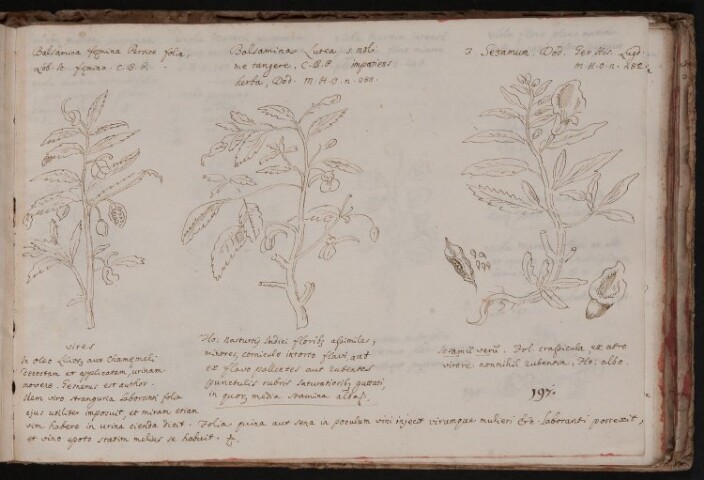 Balsamina fæmina Persicæ folia,
Lob. Ic. fæmina. C.B.P.
Balsamina Lutea s. noli
me tangere, C.B.P. impatiens
herba, Dod. M.H.O.n. 288.
3 Sesamum. Dod. Ger. His. Lugd.
M.H.O.n. 282.
vires
in oleo
et applicatam, urinam
movere. Gesnerus est author.
Idem viro stranguria laboranti folia
ejus utiliter imposuit, et miram etiam
vim habere in urina cienda dicit. Folia quina aut sena in poculum vini injecit virumque mulieri laboranti porrexit,
et vino epoto statim melius se habuit.
Flo. nasturtii Indici floribus assimiles,
minores, corniculo intorto flavi, aut
ex flavo pallentes aut rubentes
punctulis rubris saturatioribus guttati,
in quorum media stamina alba.
sesamum verum. Fol. crassicula ex atro
virore nonnihil rubentia, Flo. albo.
197.